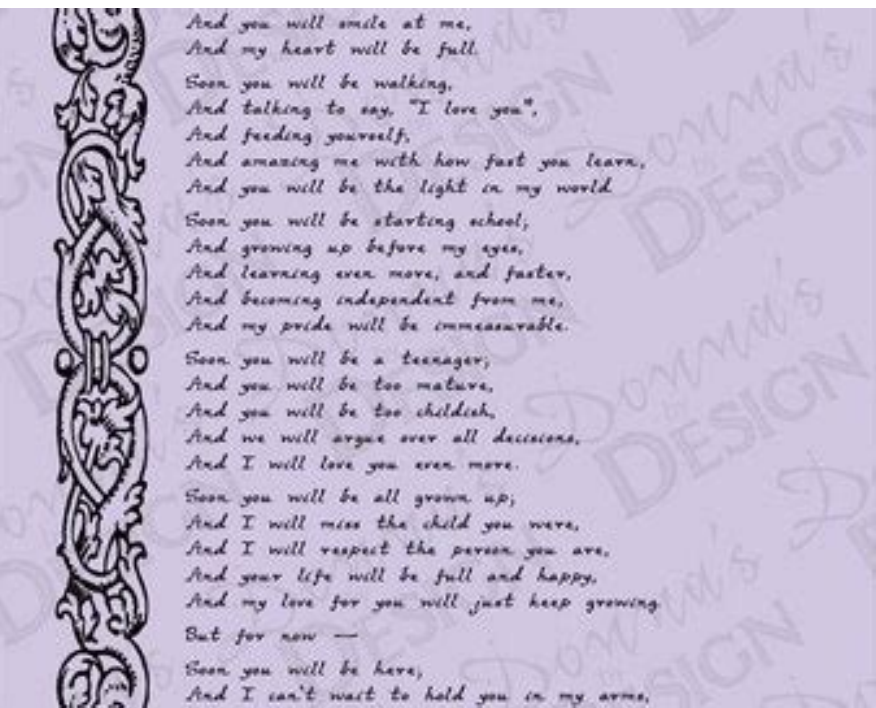 And you will smile at me,
And my heart will be full.
Soon you will be walking,
And talking to say, "I love you",
And feeding yourself,
And amazing me with how fast you learn,
And you will be the light in my world
Soon you will be starting school;
And growing up before my eyes,
And learning even more, and faster,
And becoming independent from me,
And my pride will be immeasurable.
Soon you will be a teenager;
And you will be too mature,
And you will be too childish,
And we will argue over all decisions,
And I will love you even more.
Soon you will be all grown up;
And I will miss the child you were,
And I will respect the person you are,
And your life will be full and happy,
And my love for you will just keep growing.
But for now —
Soon you will be here,
And I can't wait to hold you in my arms,
Donna's
by
DESIGN